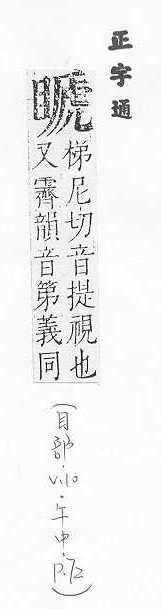 正字通
梯尼切音提視也
又霽韻音第義同
(目部·V.10·午中·P.72)